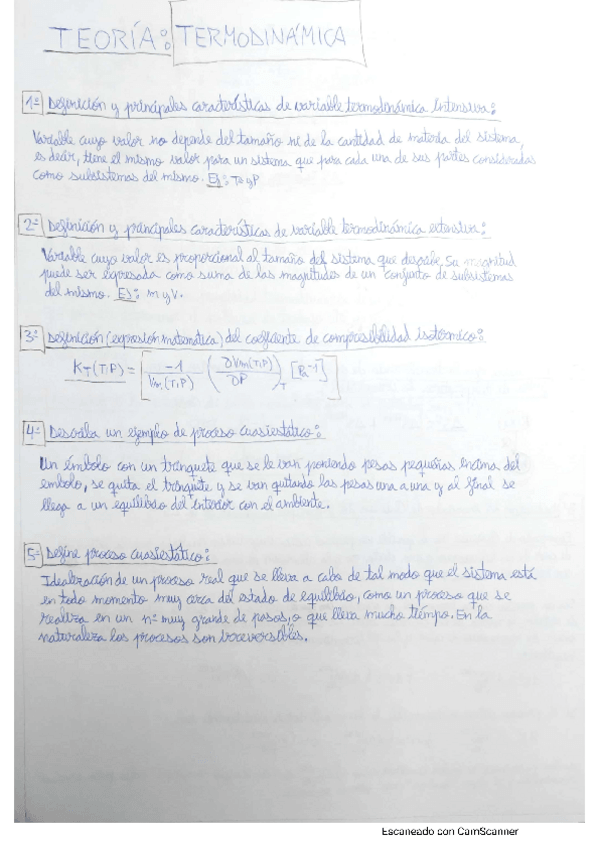 TEORÍA: TERMODINÁMICA
1- Definición y principales características de variable termodinámica intensiva:
Variable cuyo valor no depende del tamaño ni de la cantidad de materia del sistema,
es decir, tiene el mismo valor para un sistema que para cada una de sus partes consideradas
como subsistemas del mismo. Ej: T y P
2- Definición y principales características de variable termodinámica extensiva:
Variable cuyo valor es proporcional al tamaño del sistema que describe. Su magnitud
puede ser expresada como suma de las magnitudes de un conjunto de subsistemas
del mismo. Ej: m y V.
3- Definición (expresión matemática) del coeficiente de compresibilidad isotérmico:
K_T(T,P) = [ -1 / V_m(T,P) ( ∂V_m(T,P) / ∂P )_T [Pa^-1] ]
4- Describa un ejemplo de proceso cuasiestático:
Un émbolo con un trinquete que se le van poniendo pesas pequeñas encima del
embolo, se quita el trinquete y se van quitando las pesas una a una y al final se
llega a un equilibrio del interior con el ambiente.
5- Define proceso cuasiestático:
Idealización de un proceso real que se lleva a cabo de tal modo que el sistema está
en todo momento muy cerca del estado de equilibrio, como un proceso que se
realiza en un nº muy grande de pasos, o que lleva mucho tiempo. En la
naturaleza los procesos son irreversibles.
Escaneado con CamScanner